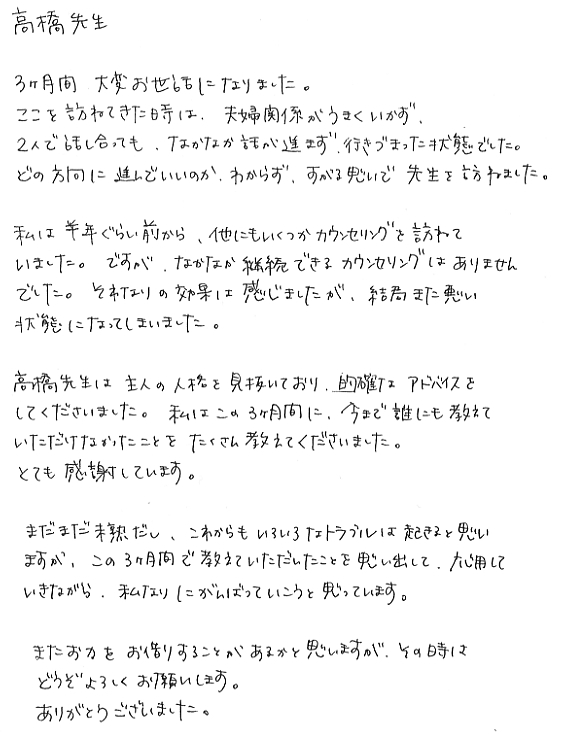 高橋先生
3ヶ月間 大変お世話になりました。
ここを訪ねてきた時は、夫婦関係がうまくいかず、
2人で話し合っても、なかなか話が進まず、行きづまった状態でした。
どの方向に進んでいいのか、わからず、すがる思いで先生を訪ねました。
私は半年ぐらい前から、他にもいくつかカウンセリングを訪ねて
いました。ですが、なかなか継続できるカウンセリングはありません
でした。それなりの効果は感じましたが、結局また悪い
状態になってしまいました。
高橋先生は主人の人格を見抜いており、的確なアドバイスを
してくださいました。私はこの3ヶ月間に、今まで誰にも教えて
いただけなかったことをたくさん教えてくださいました。
とても感謝しています。
まだまだ未熟だし、これからもいろいろなトラブルは起きると思い
ますが、この3ヶ月間で教えていただいたことを思い出して、応用して
いきながら、私なりにがんばっていこうと思っています。
またお力をお借りすることがあるかと思いますが、その時は
どうぞよろしくお願いします。
ありがとうございました。